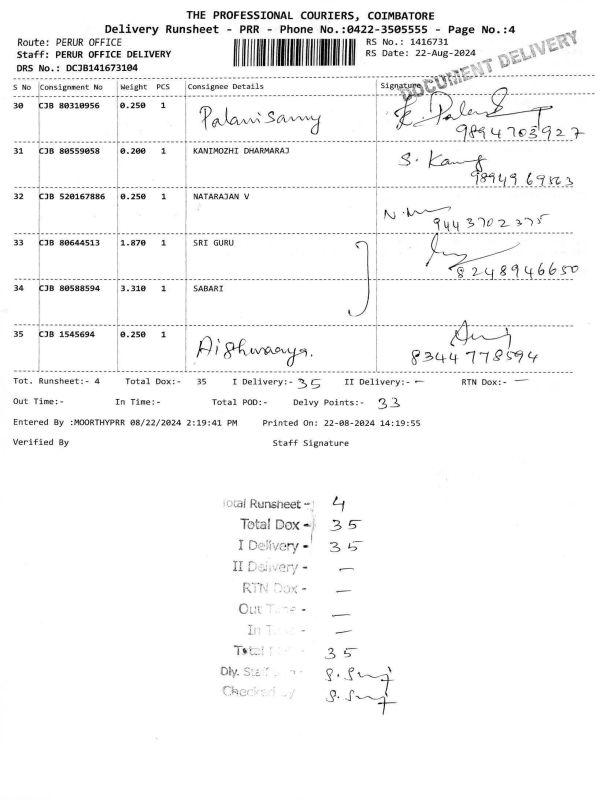 THE PROFESSIONAL COURIERS, COIMBATORE
Delivery Runsheet - PRR - Phone No.:0422-3505555 - Page No.:4
Route: PERUR OFFICE RS No.: 1416731
Staff: PERUR OFFICE DELIVERY RS Date: 22-Aug-2024
DRS No.: DCJB141673104
DOCUMENT DELIVERY
S No Consignment No Weight PCS Consignee Details Signature
30 CJB 80310956 0.250 1 Palanisamy
9894703927
31 CJB 80559058 0.200 1 KANIMOZHI DHARMARAJ S.
32 CJB 520167886 0.250 1 NATARAJAN V
9443702375
33 CJB 80644513 1.870 1 SRI GURU
8248946650
34 CJB 80588594 3.310 1 SABARI
35 CJB 1545694 0.250 1 Aishwaarya.
8344778594
Tot. Runsheet:- 4 Total Dox:- 35 I Delivery:- 35 II Delivery:- — RTN Dox:- —
Out Time:- In Time:- Total POD:- Delvy Points:- 33
Entered By :MOORTHYPRR 08/22/2024 2:19:41 PM Printed On: 22-08-2024 14:19:55
Verified By Staff Signature
Total Runsheet - 4
Total Dox - 35
I Delivery - 35
II Delivery - —
RTN Dox - —
Out Time - —
In Time - —
Total 35
Dly. Staff
Checked By